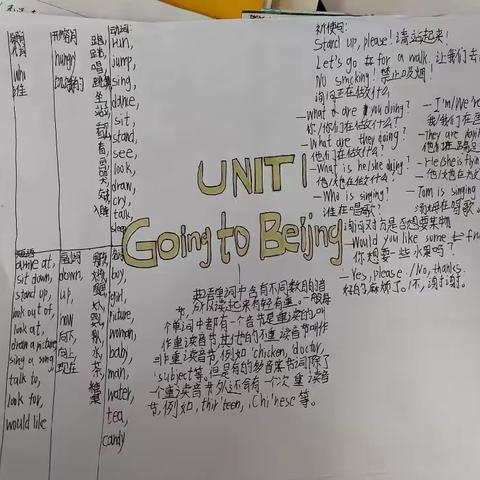 疑问代词
who
谁
形容词
hungry
饥饿的
动词:
跑 run,
跳 jump,
唱 sing,
跳舞 dance,
坐 sit,
站 stand,
看 see,
看 look,
画 draw,
哭 cry,
talk,
sleep
短语
arrive at,
sit down,
stand up,
look out of,
look at,
draw a picture,
sing a song,
talk to,
look for,
would like
副词
down,
up,
now
向下,
向上,
现在
名词
boy,
girl,
picture,
woman,
baby,
man,
water,
tea,
candy
UNIT 1
Going to Beijing
祈使句:
Stand up, please! 请站起来!
Let's go for a walk. 让我们去
No smoking! 禁止吸烟!
询问正在做什么
—What are you doing?
你/你们在做什么?
—What are they doing?
他们在做什么?
—What is he/she doing?
他/她在做什么?
—Who is singing?
谁在唱歌?
—I'm/We're
我/我们在
—They are
他们在
—He/she is
他/她在
—Tom is singing
汤姆在唱歌。
询问对方是否想要某物
—Would you like some
你想要一些水果吗?
—Yes, please. /No, thanks.
好的麻烦了。/不,谢谢。
英语单词中含有不同数目的音
节,所以读起来有轻有重。一般每
个单词中都有一个音节是重读的,叫
作重读音节,其他的不重读音节叫作
非重读音节,例如'chicken,'doctor,
'subject等。但是有的多音节词除了
一个重读音节外还含有一个次重读音
节,例如,thir'teen, ,Chi'nese等。